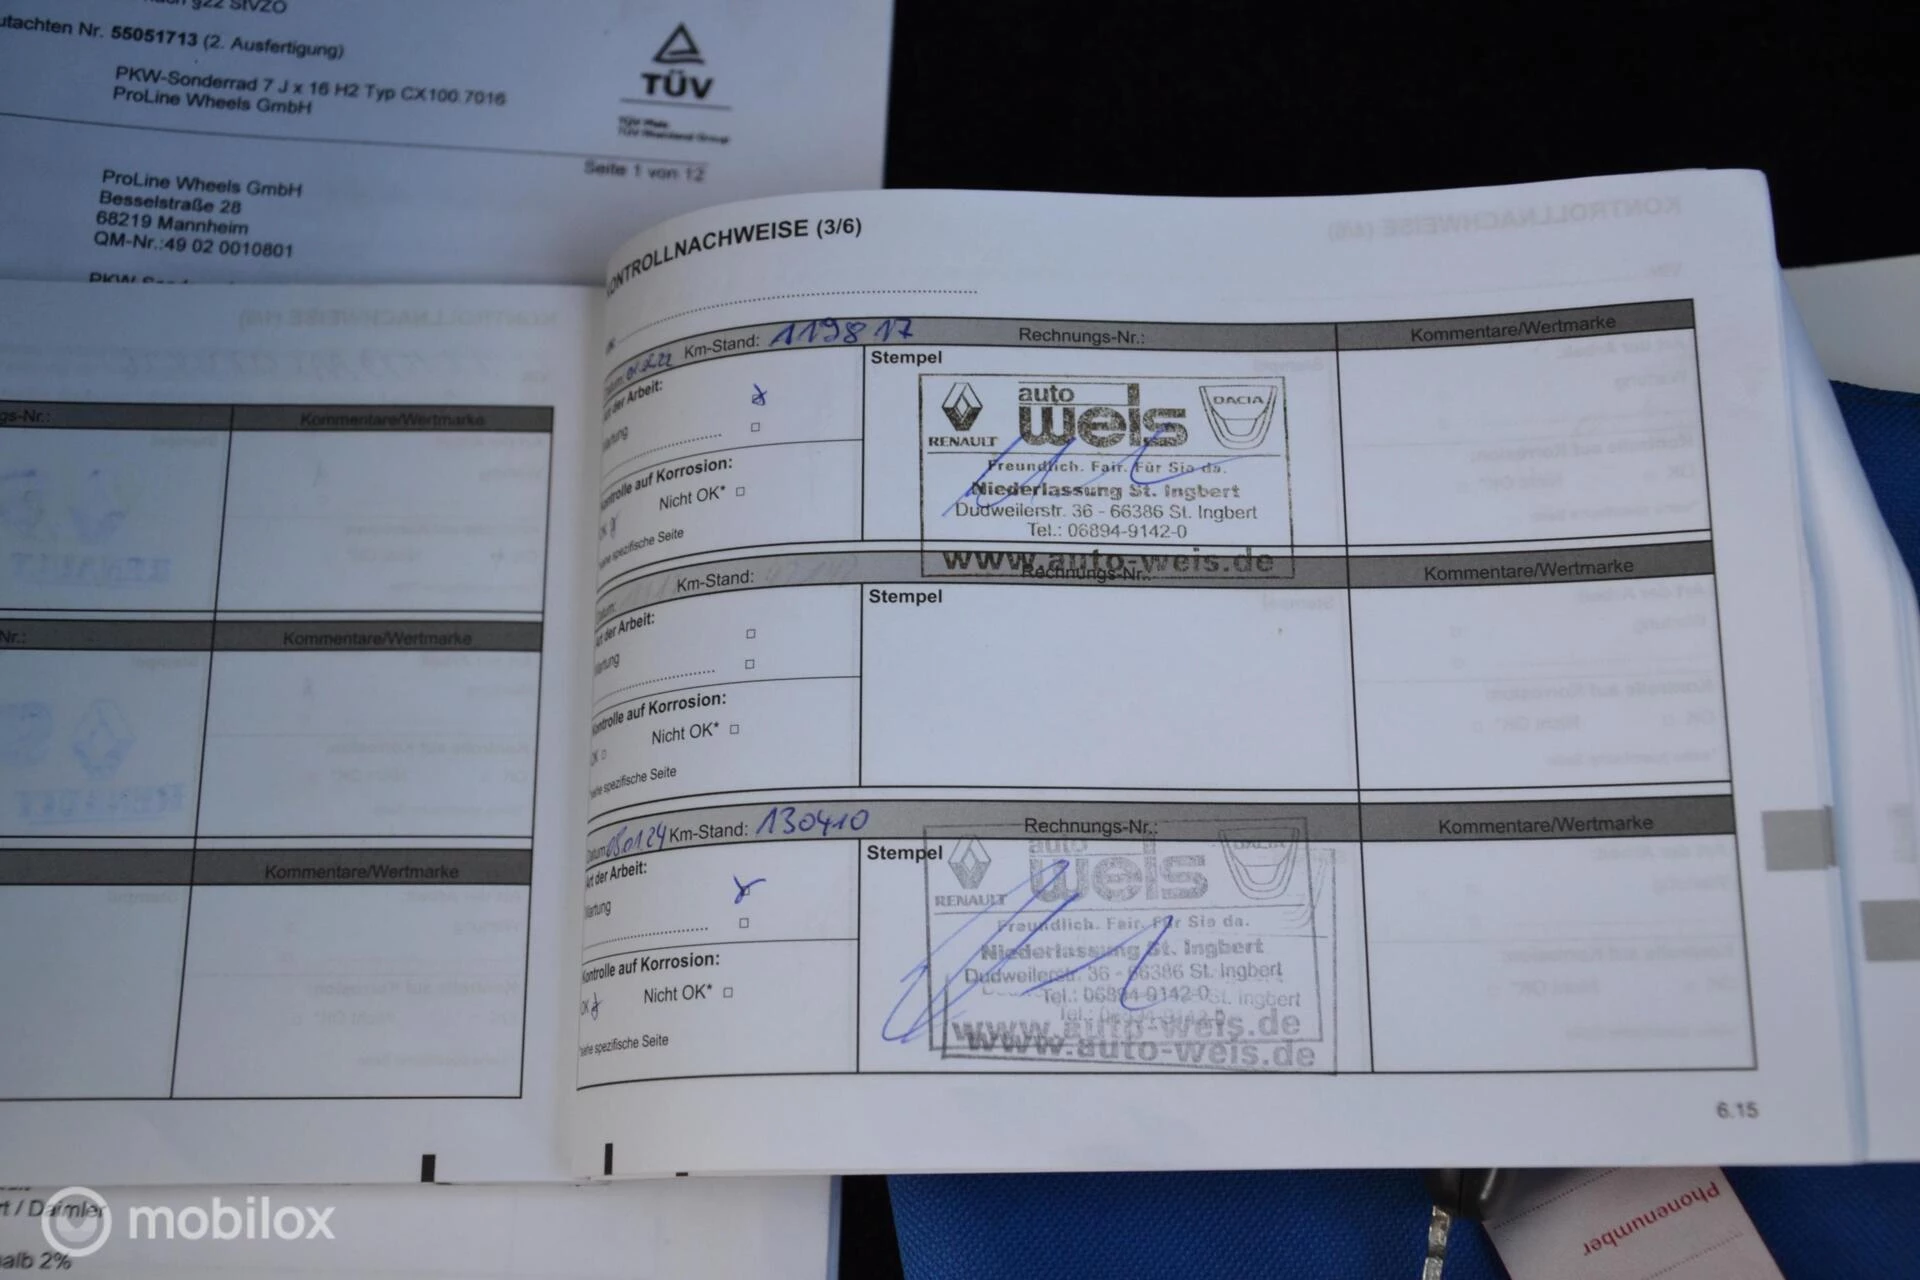 55051713 (2. Ausfertigung)
PKW-Sonderrad 7 J x 16 H2 Typ CX100 7016
ProLine Wheels GmbH
TÜV
Seite 1 von 12
ProLine Wheels GmbH
Besselstraße 28
68219 Mannheim
QM-Nr.:49 02 0010801
Kommentare/Wertmarke
Kommentare/Wertmarke
Kommentare/Wertmarke
KONTROLLNACHWEISE (3/6)
Km-Stand: 119817 Rechnungs-Nr.: Kommentare/Wertmarke
Art der Arbeit: Stempel
Wartung
Kontrolle auf Korrosion:
OK Nicht OK*
*siehe spezifische Seite
RENAULT auto weis DACIA
Freundlich. Fair. Für Sie da.
Niederlassung St. Ingbert
Dudweilerstr. 36 - 66386 St. Ingbert
Tel.: 06894-9142-0
www.auto-weis.de
Datum: Km-Stand: Rechnungs-Nr.: Kommentare/Wertmarke
Art der Arbeit: Stempel
Wartung
Kontrolle auf Korrosion:
OK Nicht OK*
*siehe spezifische Seite
Datum Km-Stand: 130410 Rechnungs-Nr.: Kommentare/Wertmarke
Art der Arbeit: Stempel
Wartung
Kontrolle auf Korrosion:
OK Nicht OK*
*siehe spezifische Seite
RENAULT auto weis DACIA
Freundlich. Fair. Für Sie da.
Niederlassung St. Ingbert
Dudweilerstr. 36 - 66386 St. Ingbert
Tel.: 06894-9142-0
www.auto-weis.de
www.auto-weis.de
6.15
Phonenumber
number
/ Daimler
mobilox
2%